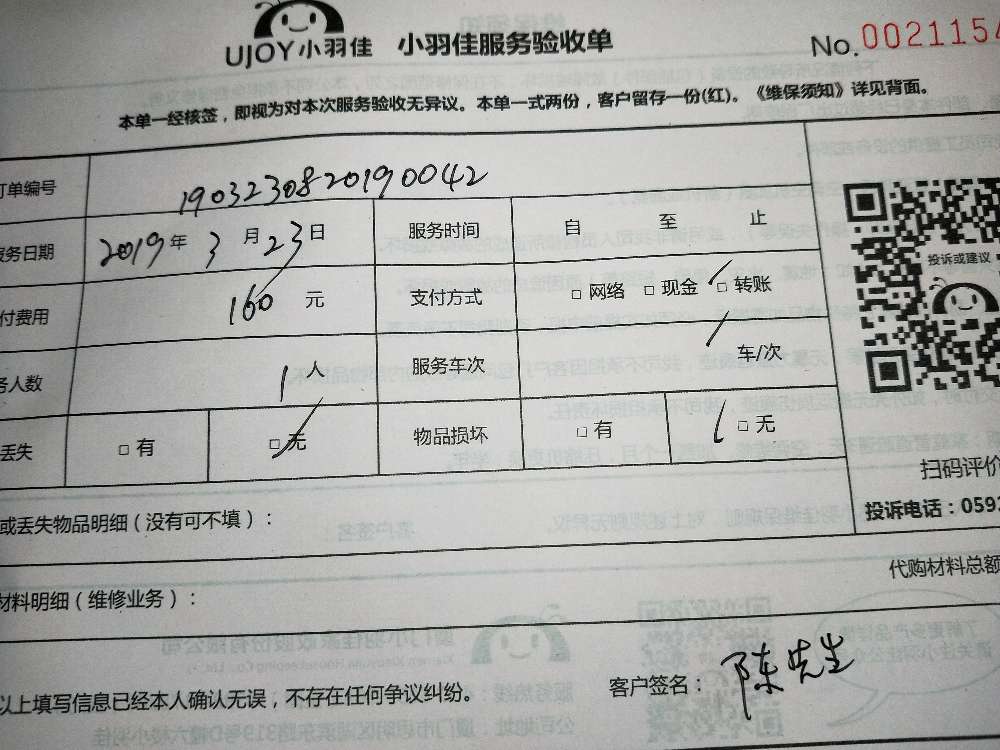 UJOY小羽佳 小羽佳服务验收单 No.0021154
本单一经核签，即视为对本次服务验收无异议。本单一式两份，客户留存一份(红)。《维保须知》详见背面。
订单编号 1903230820190042
服务日期 2019年3月23日 服务时间 自 至 止
付费用 160 元 支付方式 □ 网络 □ 现金 □ 转账
务人数 1 人 服务车次 / 车/次
丢失 □ 有 □ 无 物品损坏 □ 有 □ 无
投诉或建议
扫码评价
投诉电话：059
或丢失物品明细（没有可不填）：
代购材料总额
材料明细（维修业务）：
以上填写信息已经本人确认无误，不存在任何争议纠纷。 客户签名：陈先生